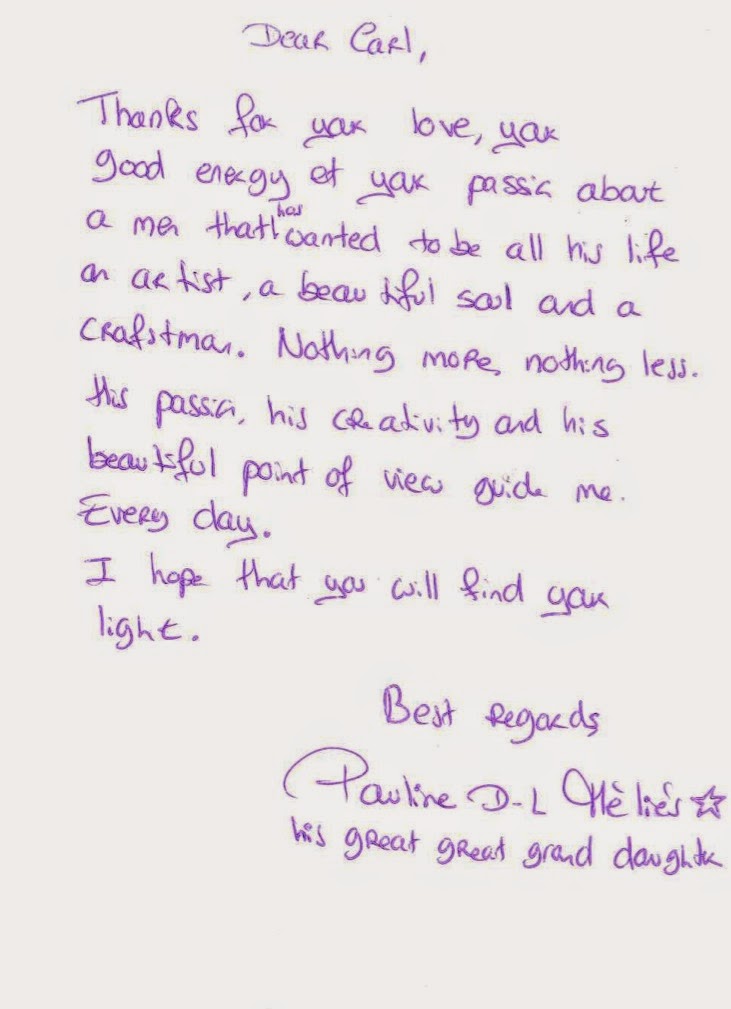 Dear Carl,
Thanks for your love, your
good energy et your passion about
a men that has wanted to be all his life
an artist, a beautiful soul and a
crafstman. Nothing more, nothing less.
His passion, his creativity and his
beautiful point of view guide me.
Every day.
I hope that you will find your
light.
Best Regards
Pauline D-L Méliès
his great great grand daughter